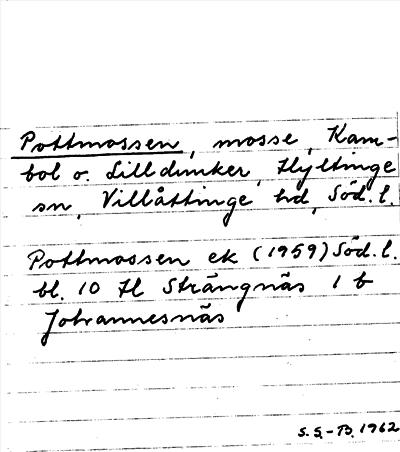 Pottmossen, mosse, Kam-
bol o. Lilldunker, Hyltinge
sn, Villåttinge hd, Söd. l.
Pottmossen ek (1959) Söd. l.
bl. 10 H Strängnäs 1 b
Johannesnäs
S. S.-B. 1962